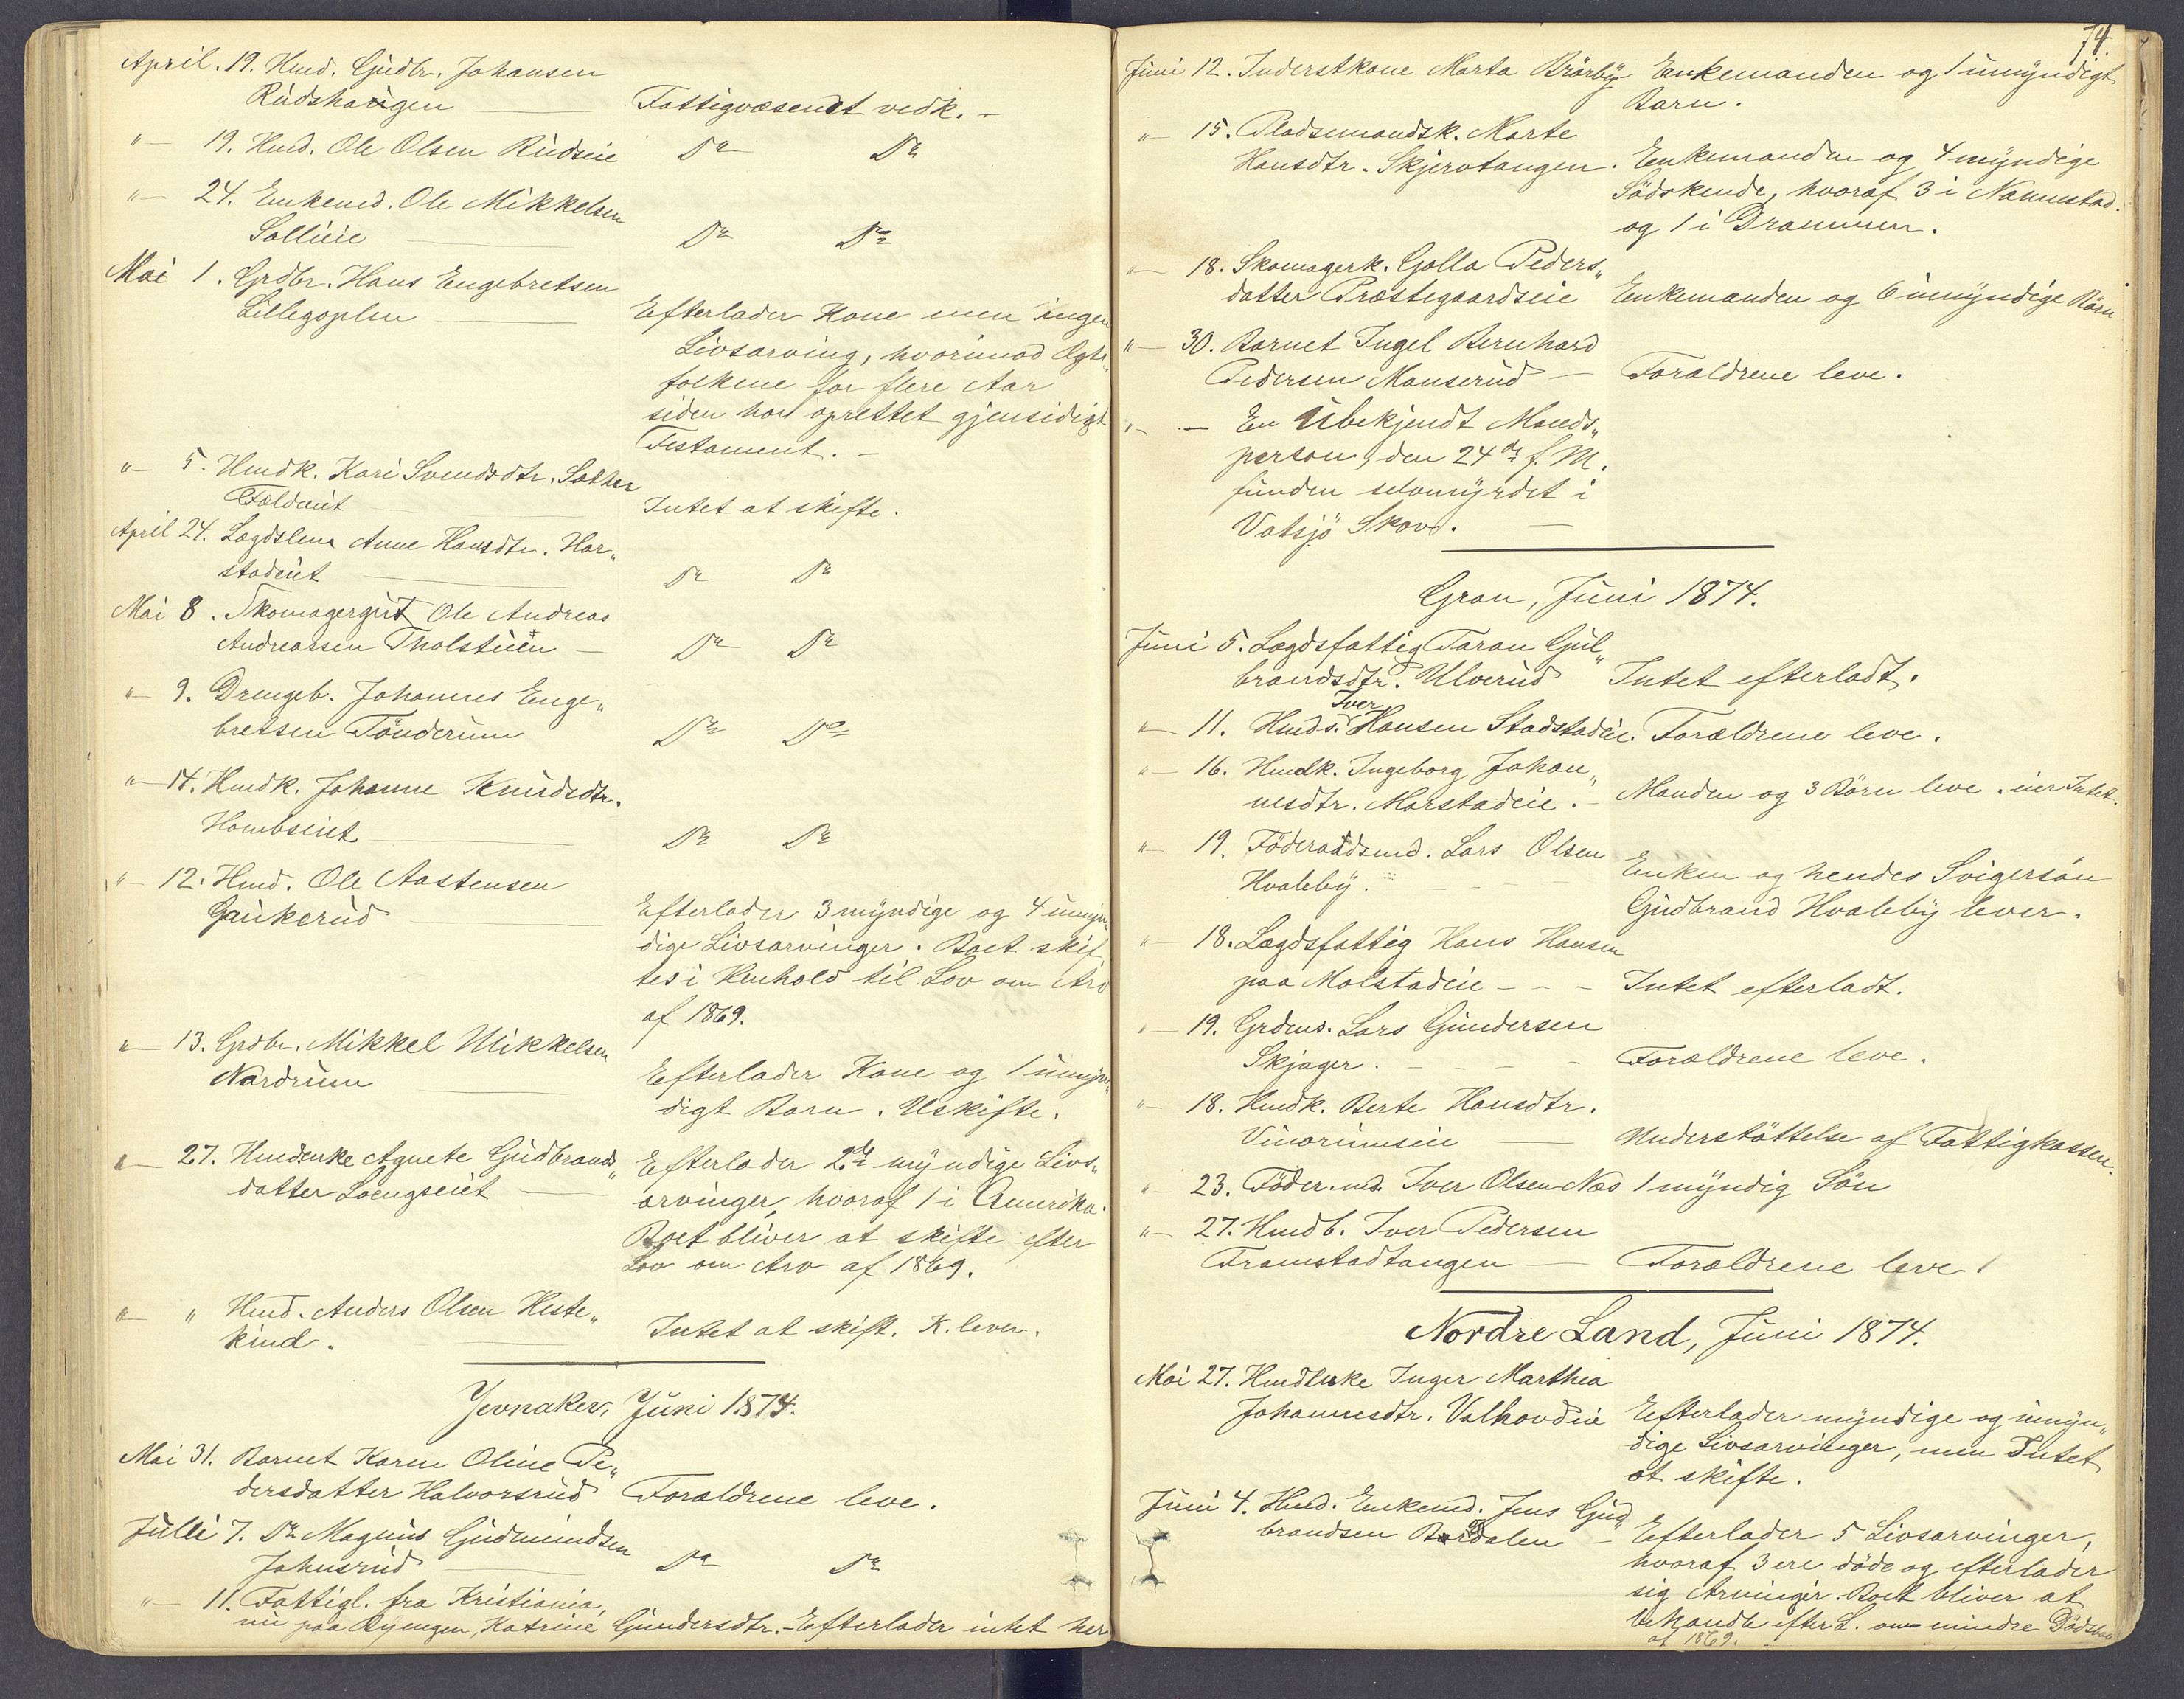 April. 19. Hmd. Gudbr. Johansen
Rudshaugen — Fattigvæsenet vedk. –
"— 19. Hmd. Ole Olsen Rudseie Do Do
"— 24. Enkemd. Ole Mikkelsen
Sollieie — Do Do
Mai 1. Grdbr. Hans Engebretsen
Lillegoplen — Efterlader Kone men ingen
Livsarving, hvorimod Ægte„
folkene for flere Aar
siden har oprettet gjensidigt
Testament. –
"— 5. Hmdk. Kari Svendsdtr. Sother
Foldeiet — Intet at skifte.
April 24. Lægdslem Anne Hansdtr. Har„
stadeiet — Do Do
Mai 8. Skomagergut Ole Andreas
Andreassen Tholsteien — Do Do
"— 9. Drengeb. Johannes Enge„
bretsen Tönderum Do Do
"— 14. Hmdk. Johanne Knudsdtr.
Hombseiet — Do Do
"— 12. Hmd. Ole Aastensen
Gaukerud — Efterlader 3 myndige og 4 umyn„
dige Livsarvinger. Boet skif
tes i Henhold til Lov om Arv
af 1869.
"— 13. Grdbr. Mikkel Mikkelsen
Nordrum — Efterlader Kone og 1 umyn„
digt Barn. Uskifte.
"— 27. Hmdenke Agnete Gudbrands„
datter Loengseiet — Efterlader 2de myndige Livs„
arvinger, hvoraf 1 i Amerika.
Boet bliver at skifte efter
Lov om Arv af 1869.
"— " Hmd. Anders Olsen Heste„
kind. — Intet at skift. K. lever.
Jevnaker, Juni 1874.
Mai 31. Barnet Karen Oline Pe„
dersdatter Halvorsrud Forældrene leve.
Julli 7. Do Magnus Gudmundsen
Johnsrud — Do Do
"— 11. Fattigl. fra Kristiania,
nu paa Rymgen, Katrine Gundersdtr. – Efterlader intet her
74.
Juni 12. Inderstkone Marta Brörby Enkemanden og 1 umyndigt
Barn.
"— 15. Pladsemandsk. Marte
Hansdtr. Skjervtangen. Enkemanden og 4 myndige
Södskende, hvoraf 3 i Nannestad.
og 1 i Drammen.
"— 18. Skomagerk. Golla Peders„
datter Præstegaardseie Enkemanden og 6 umyndige Börn
"— 30. Barnet Ingel Bernhard
Pedersen Monserud — Forældrene leve.
"— — En Ubekjendt Mands„
person, den 24de f. M.
funden selvmyrdet i
Vatsjö Skov. —
Gran, Juni 1874.
Juni 5. Lægdsfattig Taran Gul„
brandsdtr. Ulverud Intet efterladt.
"— 11. Hmds. Iver Hansen Stadstadeie. Forældrene leve.
"— 16. Hmdk. Ingeborg Johan„
nesdtr. Morstadeie. – Manden og 3 Börn leve. eier Intet.
"— 19. Föderaadsmd. Lars Olsen
Hvaleby. — Enken og hendes Svigersön
Gudbrand Hvaleby lever.
"— 18. Lægdsfattig Hans Hansen
paa Molstadeie – – – Intet efterladt.
"— 19. Grdms. Lars Gundersen
Skjager. – – – – Forældrene leve.
"— 18. Hmdk. Berte Hansdtr.
Vinorumseie — Understöttelse af Fattigkassen.
"— 23. Föder. md. Iver Olsen Næs 1 myndig Sön
"— 27. Hmdb. Iver Pedersen
Framstadtangen — Forældrene leve
Nordre Land, Juni 1874.
Mai 27. Hmdenke Inger Marthea
Johannesdtr. Valhovdeie Efterlader myndige og umyn„
dige Livsarvinger, men Intet
at skifte.
Juni 4. Hmd. Enkemd. Jens Gud„
brandsen Bordalen – Efterlader 5 Livsarvinger,
hvoraf 3 ere döde og efterlader
sig Arvinger. Boet bliver at
behandle efter L. om mindre Dödsbo
af 1869.